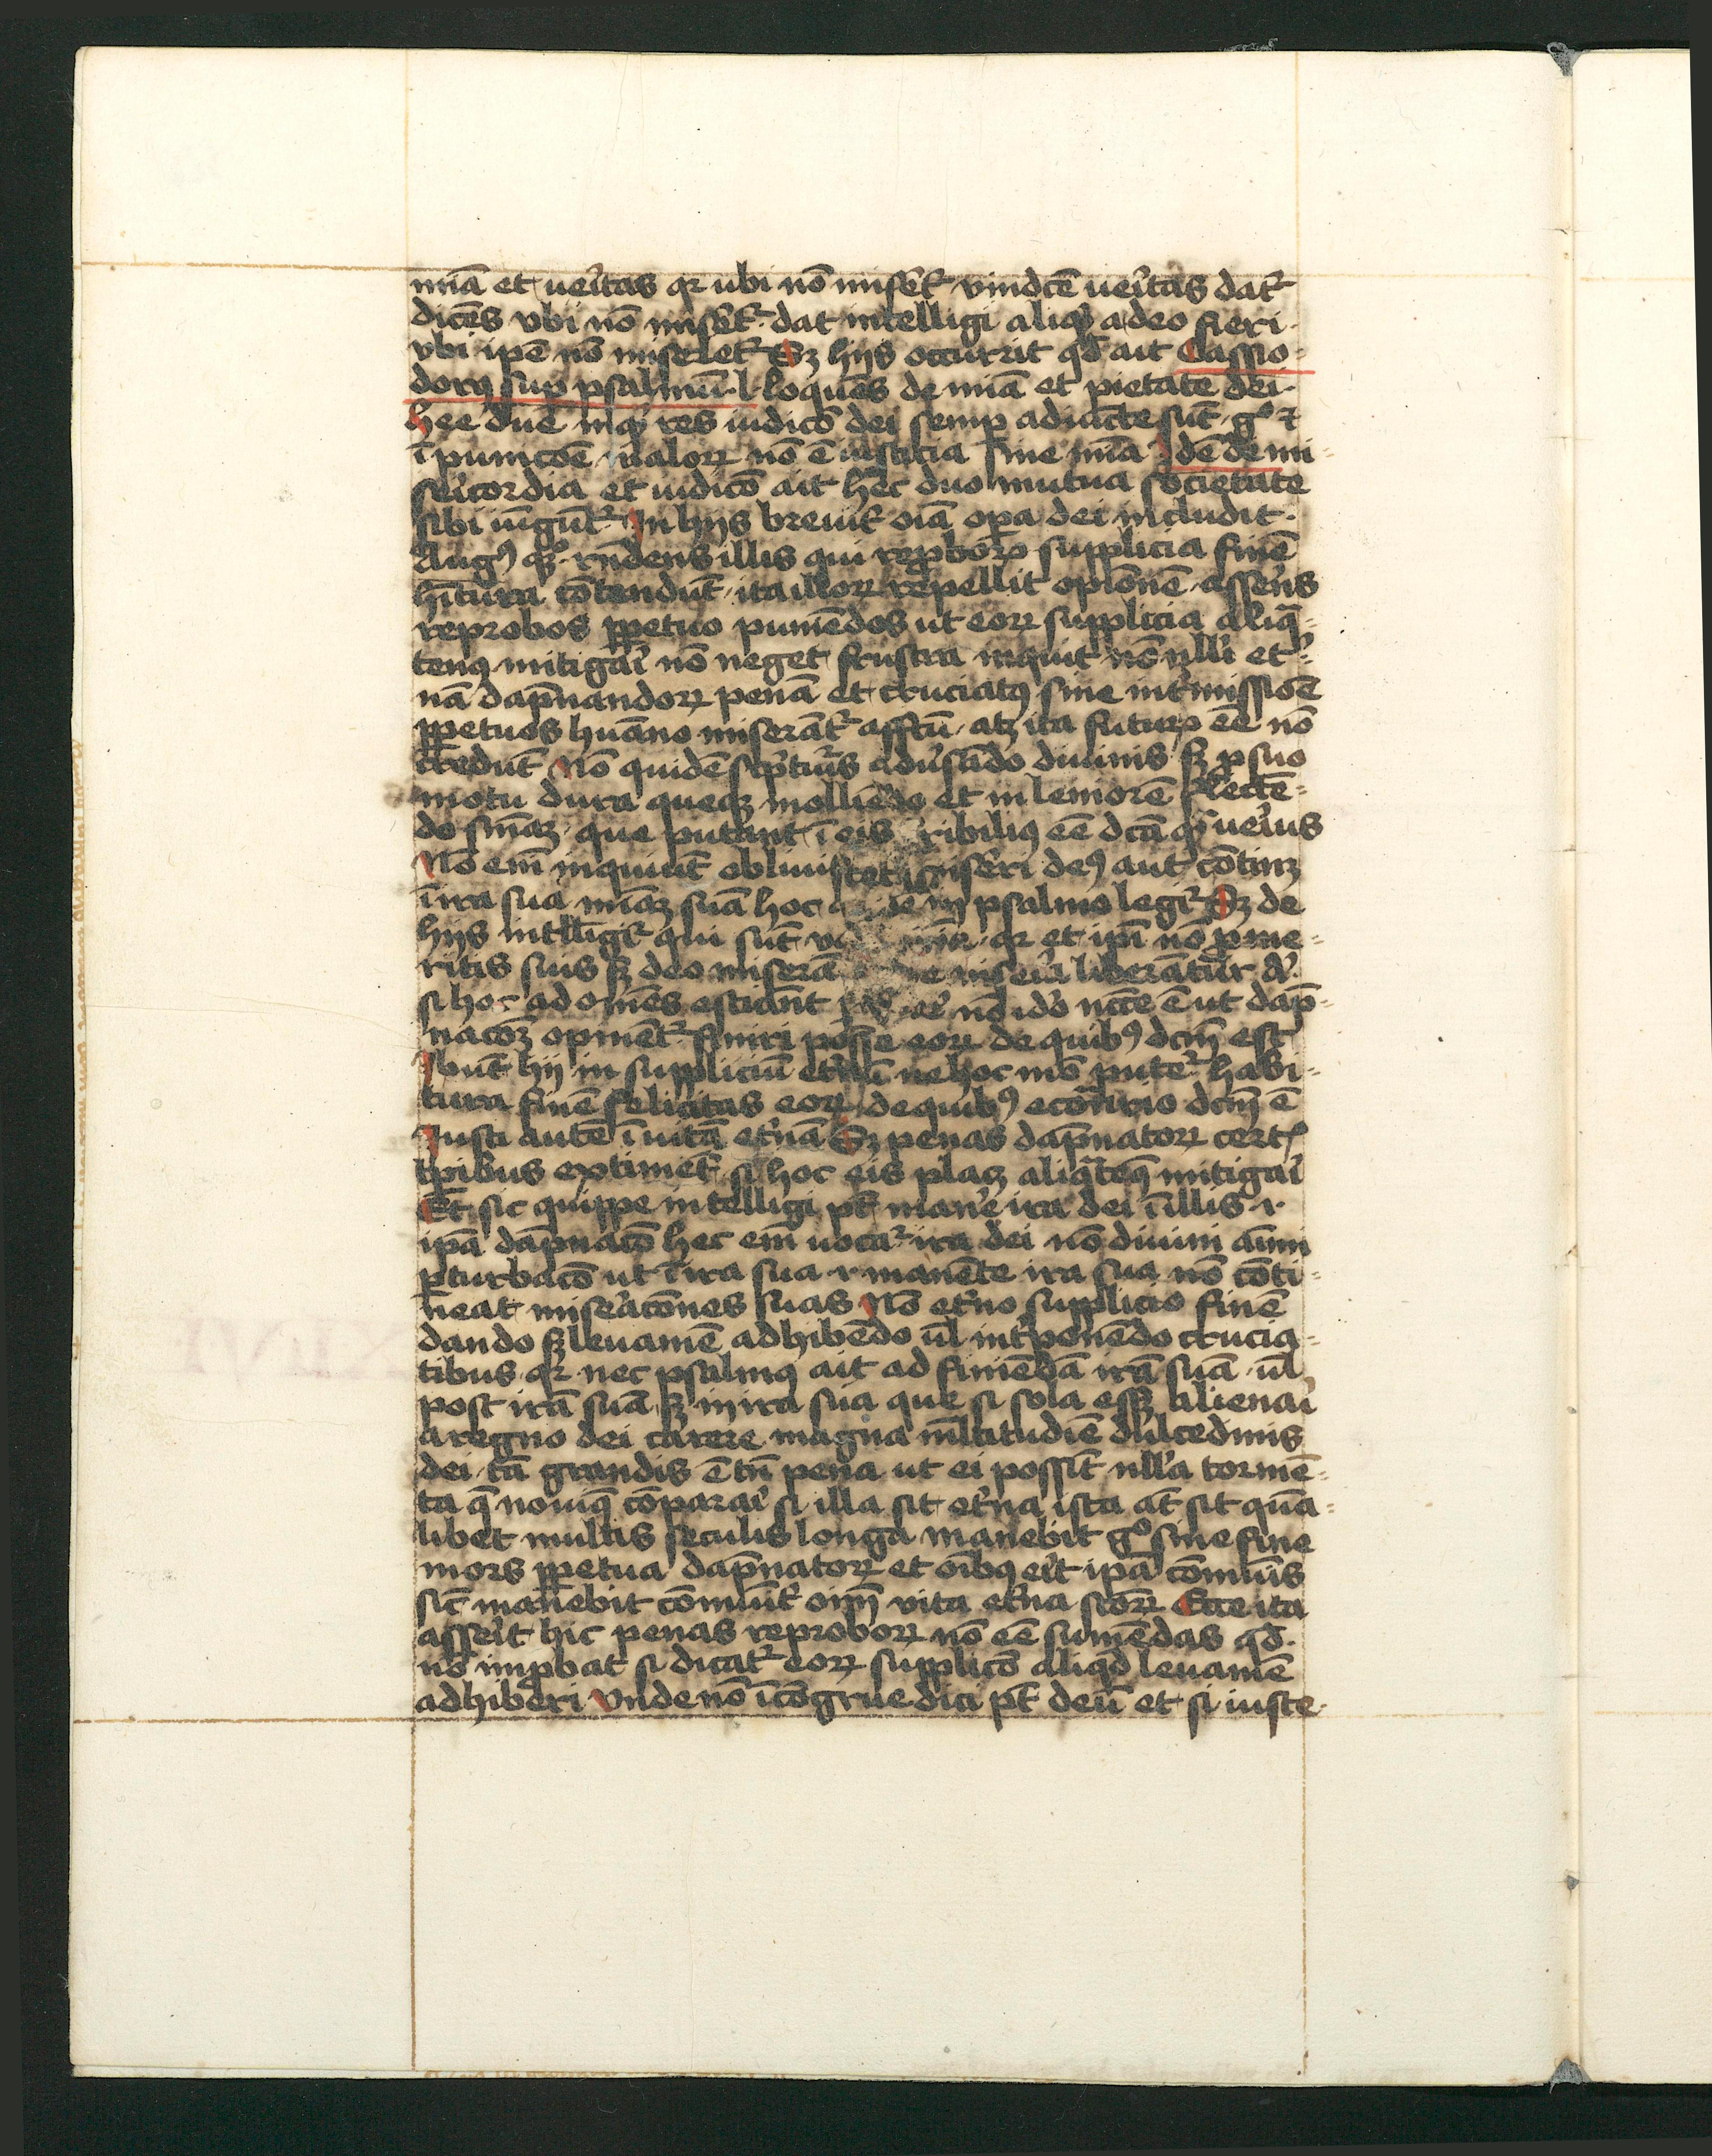 mia̅ et ueritas qꝛ ubi no̅ miseret᷑ vindice̅ ueritas dat᷑
dice̅s vbi no̅ miseret᷑ dat intelligi aliqd̕ a deo fieri·
vbi ip̅e no̅ miseret᷑ Sꝫ hijs occurrit qd̕ ait Cassio-
dorꝰ sup̲ psalmu̅·l·loque̅s de mia̅ et pietate dei·
hee due inqͥ res iudico̅ dei semp̲ adiu̅cte su̅t·gͦ ⁊
i̅ punico̅e maloꝝ no̅ e̅ iusticia sine mia̅ Ide̅ de mi-
sericordia et iudico̅ ait hec duo mutua societate
sibi iu̅gu̅t᷑ In hijs breuit᷑ o̅ia op̲a dei includit·
Augꝰ qꝫ rn̅dens illis qui reproboꝝ supplicia fine̅
hi̅tura co̅tendu̅t· ita illoꝝ repellit opi̅one̅ asseres
reprobos p̲petuo punie̅dos ut eoꝝ supplicia aliqͣ-
tenꝰ mitigari no̅ neget frustra inquit no̅nulli et᷑-
na̅ dapn̅andoꝝ pena̅ et cruciatꝰ sine int᷑missio̅e
p̲petuos hua̅no misera̅t᷑ affcu̅· atꝫ ita futuro e̅e no̅
credu̅t No̅ quide̅ sc̲pturis adu᷑sa̅do diuinis sꝫ p̲ suo
motu dura queqꝫ mollie̅do et in leniore̅ flecte̅-
do sn̅iaꝫ· que puta̅nt i̅ eis ribilius e̅e dca̅ qͣ ueriꝰ
No̅ em̅ inquiu̅t obliuiscet᷑ miseri deꝰ aut co̅tinꝫ
i̅ ira sua mi̅aꝫ sua̅ hoc in psalmo legit᷑ Sꝫ de
hijs intelligit᷑ qui su̅t qꝛ et ip̅i no̅ p̲ me-
ritis suis sꝫ deo misera̅ miseria libera̅tur
si hoc ad om̅es estia̅nt no̅ ido̅ ncc̅e e̅ ut dap̅-
naco̅ꝫ opine̅t᷑ finiri posse eoꝝ de quibꝰ dcm̅ est
Ibu̅t hij in suppliciu̅ et᷑nu̅ ne hoc mo̅ putet᷑ habi-
tura fine̅ felicitas eoꝝ· de quibꝰ eco̅trario dcm̅ e̅
Iusti aute̅ i̅ uita̅ et᷑na̅ Sꝫ penas dapn̅atoꝝ cert̅
tp̲ibus extime̅t᷑ si hoc eis placꝫ aliqͣtenꝰ mitigari
Et sic quippe intelligi pt̅ mane̕ ira dei i̅ illis·i·
ip̅a dapn̅aco̅ hec em̅ uocat᷑ ira dei no̅ diuini a̅imi
p̲turbaco̅ ut i̅ ira sua·i·mane̅te ira sua no̅ co̅ti-
neat miseraco̅nes suas No̅ et᷑no supplicio fine̅
dando sꝫ leuame̅ adhibe̅do ul̕ int᷑pone̅do crucia-
tibus· qꝛ nec psalmꝰ ait ad finie̅da̅ ira̅ sua̅· ul̕
post ira̅ sua̅ sꝫ in ira sua que si sola essꝫ alienari
a regno dei carere magna ml̕titudi̅e dulcedinis
dei· ta̅ grandis e̅ tn̅ pena ut ei possi̅t nulla torme̅-
ta qͣ nouimꝰ co̅parari si illa sit et᷑na ista at̅ sit qua̅-
libet multis seculis longa manebit gͦ sine fine
mors p̲petua dapn̅atoꝝ et oi̅bꝰ erit ip̅a co̅mu̅is
sic̕ manebit co̅mu̅it᷑ oi̅m vita et᷑na sc̅oꝝ Ecce ita
asserit hic penas reproboꝝ no̅ e̅e sumendas qd̕·
no̅ inp̲bat si dicat᷑ eoꝝ supplico̅ aliqd̕ leuame̅
adhiberi Unde no̅ i̅co̅grue dici pt̅ deu̅ et si iuste·